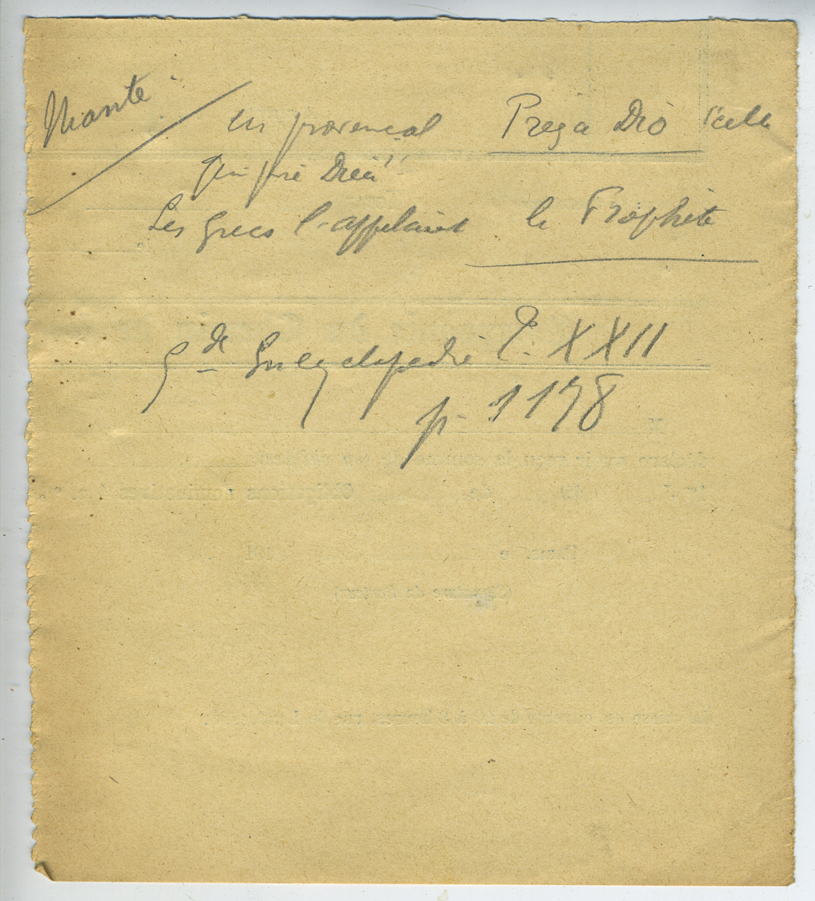 Mante en provençal Prega Dio "celle
qui prie Dieu"
Les Grecs l'appelaient le Prophète
Gde Encyclopédie T. XXII
p. 1178